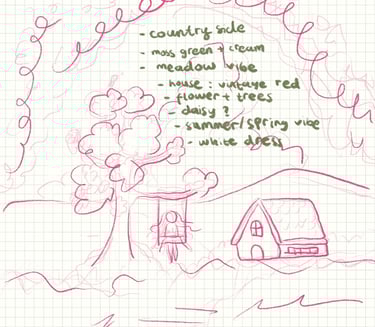 - country side
- moss green + cream
- meadow vibe
- house : vintage red
- flower + trees
- daisy ?
- summer/spring vibe
- white dress